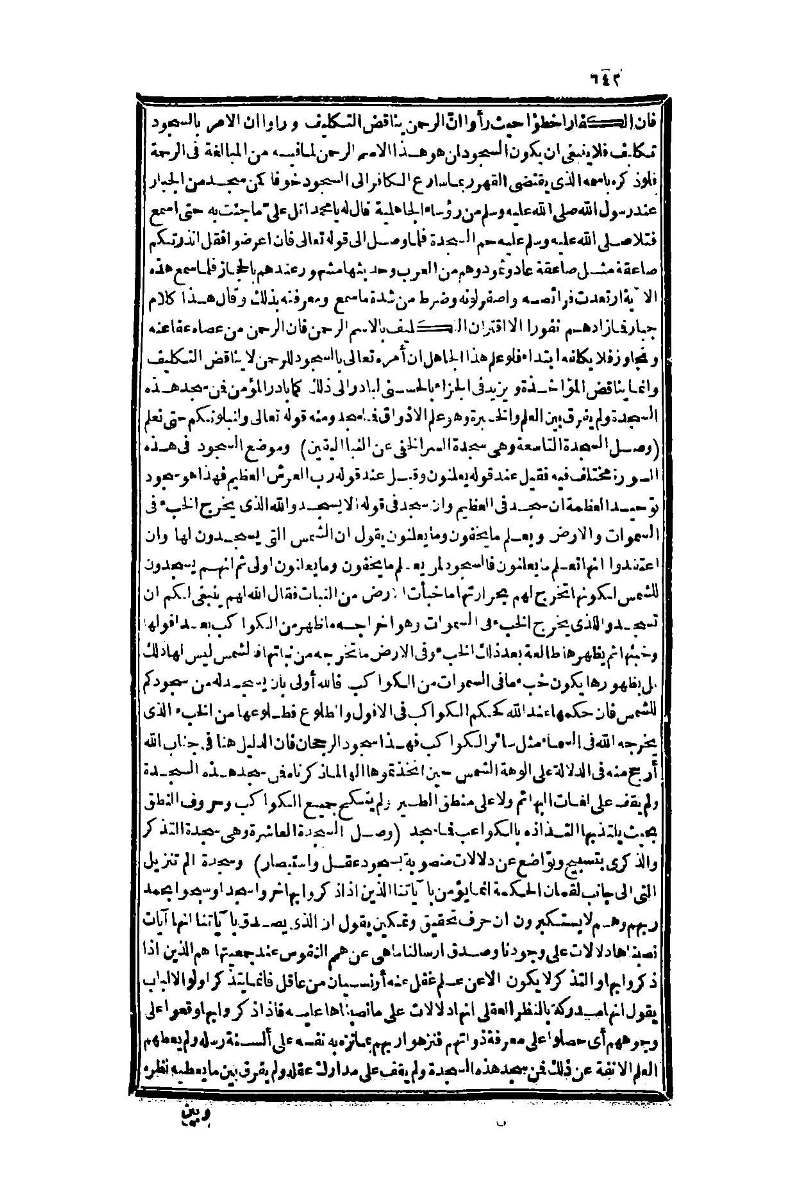 ٦٤٢
فان الكفار اخطؤا حيث رأوا ان الرحمن يناقض التكليف ورأوا ان الامر بالسجود
تكليف فلا ينبغي ان يكون السجود لمن هو هذا الاسم الرحمن لما فيه من المبالغة في الرحمة
فلو ذكره باسمه الذي يقتضى القهر ربما سارع الكافر الى السجود خوفا كمن سجد من الجبار
عند رسول الله صلى الله عليه وسلم من رؤساء الجاهلية قال له يا محمد اتل علىّ مما جئت به حتى اسمع
فتلا صلى الله عليه وسلم عليه حم السجدة فلما وصل الى قوله تعالى فان اعرضوا فقل انذرتكم
صاعقة مثل صاعقة عاد وثمود وهم من العرب وحديثهما مشهور عندهم بالحجاز فلما سمع هذه
الآية ارتعدت فرائصه واصفر لونه وضرط من شدة ما سمع ومعرفته بذلك وقال هذا كلام
جبار فما زادهم نفورا الا اقتران التكليف بالاسم الرحمن فان الرحمن من عصاه عفا عنه
وتجاوز فلا يكلفه ابتداء فلو علم هذا الجاهل ان أمره تعالى بالسجود للرحمن لا يناقض التكليف
وانما يناقض المؤاخذة ويزيد فى الجزاء بالحسنى لبادر الى ذلك كما بادر المؤمن فمن سجد هذه
السجدة ولم يفرق بين العلم والخبرة وهو علم الاذواق فما سجد ومنه قوله تعالى ولنبلونكم حتى نعلم
(وصل السجدة التاسعة وهى سجدة السر الخفى عن النبا اليقين) وموضع السجود فى هذه
السورة مختلف فيه فقيل عند قوله يعلنون وقيل عند قوله رب العرش العظيم فهذا هو سجود
توحيد العظمة ان سجد فى العظيم وان سجد فى قوله الا يسجدوا لله الذى يخرج الخبء فى
السموات والارض ويعلم ما يخفون وما يعلنون يقول ان الشمس التى يسجدون لها وان
اعتقدوا انها تعلم ما يعلنون فالسجود لمن يعلم ما يخفون وما يعلنون اولى ثم انهم يسجدون
للشمس لكونها تخرج لهم بحرارتها ما خبأت الارض من النبات فقال الله لهم ينبغى لكم ان
تسجدوا للذى يخرج الخبء فى السموات وهو اخراجه ما ظهر من الكواكب بعد افولها
وخبئها ثم يظهرها طالعة بعد ذلك الخبء وفى الارض ما تخرجه من نباتها فالشمس ليس لها ذلك
بل بظهورها يكون خبء ما فى السموات من الكواكب فالله أولى بان يسجد له من سجودكم
للشمس فان حكمها عند الله كحكم الكواكب فى الافول والطلوع فطلوعها من الخبء الذى
يخرجه الله فى السماء مثل سائر الكواكب فهذا سجود الرجحان فان الدليل هنا فى جناب الله
أرجح منه فى الدلالة على الوهة الشمس حين اتخذتموها الها لما ذكرناه فمن سجد هذه السجدة
ولم يقف على لغات البهائم ولا على منطق الطير ولم ينكح جميع الكواكب وحروف النطق
بحيث يلتذ بها التذاذه بالكواعب فما سجد (وصل السجدة العاشرة وهى سجدة التذكر
والذكرى بتسبيح وتواضع عن دلالات منصوبة بسجود عقل واستبصار) وسجدة الم تنزيل
التى الى جانب لقمان الحكمة انما يؤمن بآياتنا الذين اذا ذكروا بها خروا سجدا وسبحوا بحمد
ربهم وهم لا يستكبرون ان حرف تحقيق وتمكين يقول ان الذى يصدق بآياتنا انها آيات
نصبناها دلالات على وجودنا وصدق ارسالنا ما هى عن همم النفوس عند جمعيتها هم الذين اذا
ذكروا بها والتذكر لا يكون الا عن علم غفل عنه أو نسيان من عاقل فانما يتذكر اولو الالباب
يقول انها مدركة بالنظر العقلى انها دلالات على ما نصبناها عليه فاذا ذكروا بها وقعوا على
وجوههم أى حصلوا على معرفة ذواتهم فنزهوا ربهم بما نزه به نفسه على ألسنة رسله ولم يعطهم
العلم الانفة عن ذلك فمن سجد هذه السجدة ولم يقف على مدارك عقله ولم يفرق بين ما يعطيه نظره
وبين